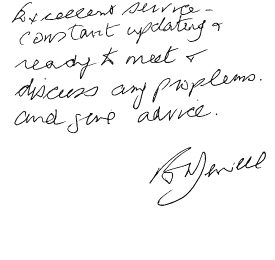 Excellent service -
constant updating &
ready to meet &
discuss any problems.
and give advice.